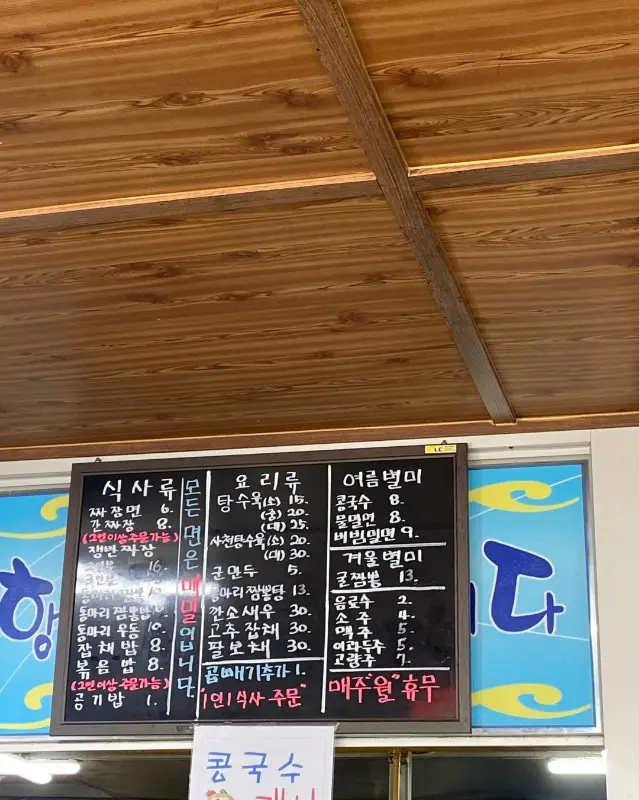 식사류
짜장면 6.
간짜장 8.
(2인이상 주문가능)
쟁반짜장
2인분 16.
3인분
통마리 짬뽕밥
통마리 우동 10.
잡채밥 8.
볶음밥 8.
(2인이상 주문가능)
공기밥 1.
모든 면은 메밀입니다.
요리류
탕수육(소) 15.
(중) 20.
(대) 25.
사천탕수육(소) 20.
(대) 30.
군만두 5.
통마리짬뽕탕 13.
깐소새우 30.
고추잡채 30.
팔보채 30.
곱빼기추가 1.
"1인1식사 주문"
여름별미
콩국수 8.
물밀면 8.
비빔밀면 9.
겨울별미
굴짬뽕 13.
음료수 2.
소주 4.
맥주 5.
이과두주 5.
고량주 7.
매주"월"휴무
항
다
콩국수